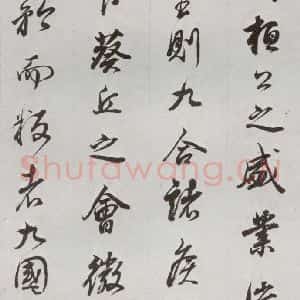 桓公之盛業
則九合諸侯
葵丘之會微
矜而叛者九國
Shufawang.cn